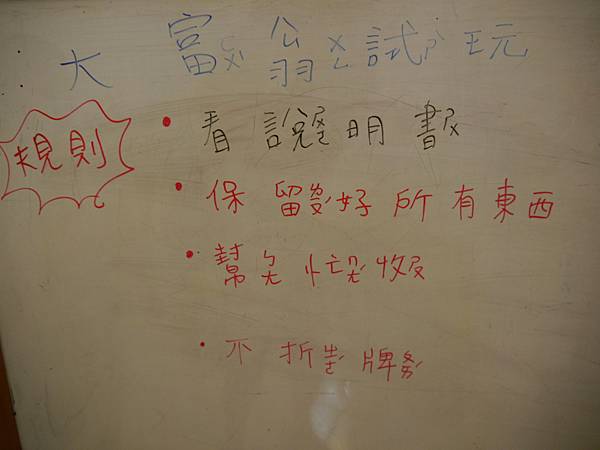 大富翁試玩
規則
• 看說明書
• 保留好所有東西
• 幫忙收
• 不折牌